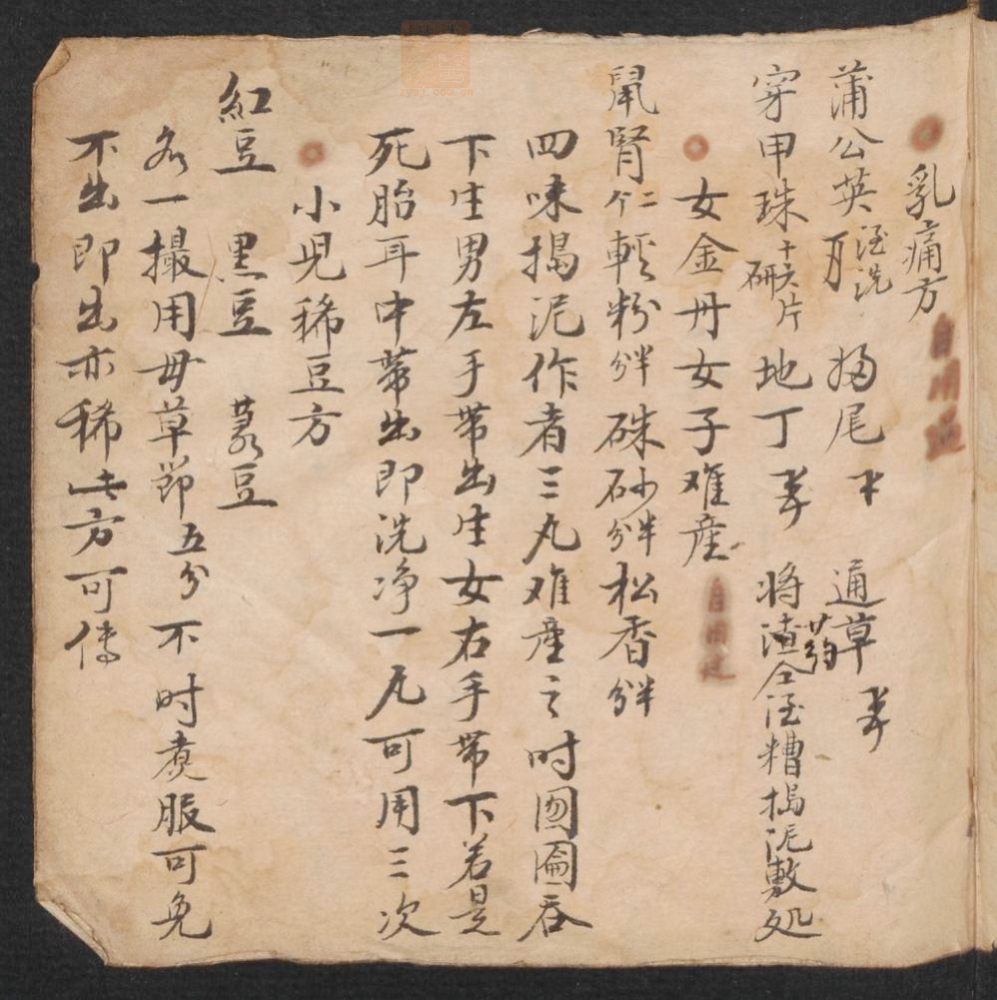 乳痛方
蒲公英 洗 归尾 通草
穿甲珠 十六片 研 地丁 将渣 药 糟捣泥敷处
女金丹女子难產
鼠腎 仁二 軽粉 半分 硃砂 半分 松香 半分
四味搗泥作者三丸难產之时囫圇吞
下生男左手带出生女右手带下若是
死胎耳中带出即洗净一丸可用三次
小児稀豆方
紅豆 黒豆 菉豆
各一撮用毋草節五分不时煮服可免
不出即出亦稀此方可傳